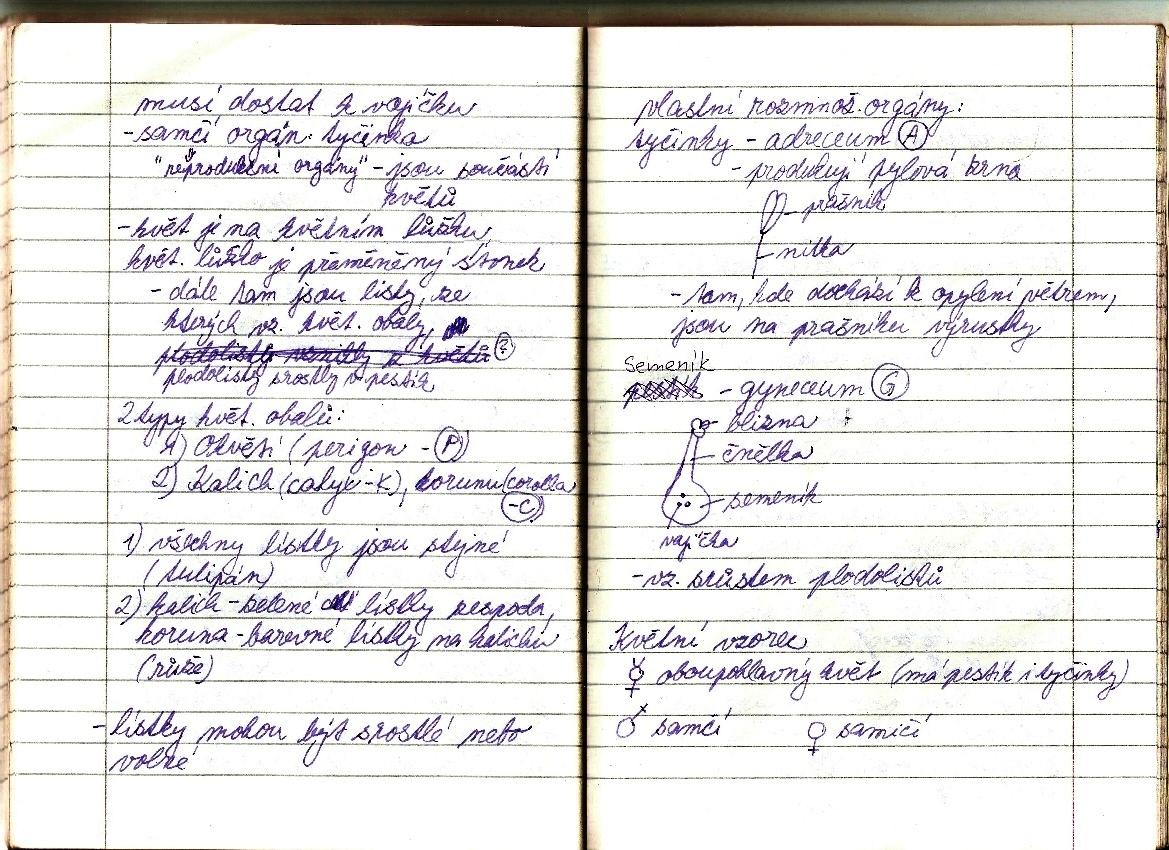 musí dostat k vajíčku
- samčí orgán: tyčinka
"reprodukční orgány" - jsou součástí
květů
- květ je na květním lůžku,
květ. lůžko je přeměněný stonek
- dále tam jsou listy, ze
kterých vz. květ. obaly,
plodolisty vznikly z květů ?
plodolisty srostly v pestík
2 typy květ. obalů:
1) Okvětí (perigon - P)
2) Kalich (calyx - K), korunu (corolla
- C)
1) všechny lístky jsou stejné
(tulipán)
2) kalich - zelené lístky zespoda,
koruna - barevné lístky na kalichu
(růže)
- lístky mohou být srostlé nebo
volné
vlastní rozmnož. orgány:
tyčinky - adreceum A
- produkují pylová zrna
- prašník
- nitka
- tam, kde dochází k opylení větrem,
jsou na prašníku výrustky
Semeník
pestík - gyneceum G
- blizna
- čnělka
- semeník
vajíčka
- vz. srůstem plodolistů
Květní vzorec
☿ oboupohlavný květ (má pestík i tyčinky)
♂ samčí ♀ samičí